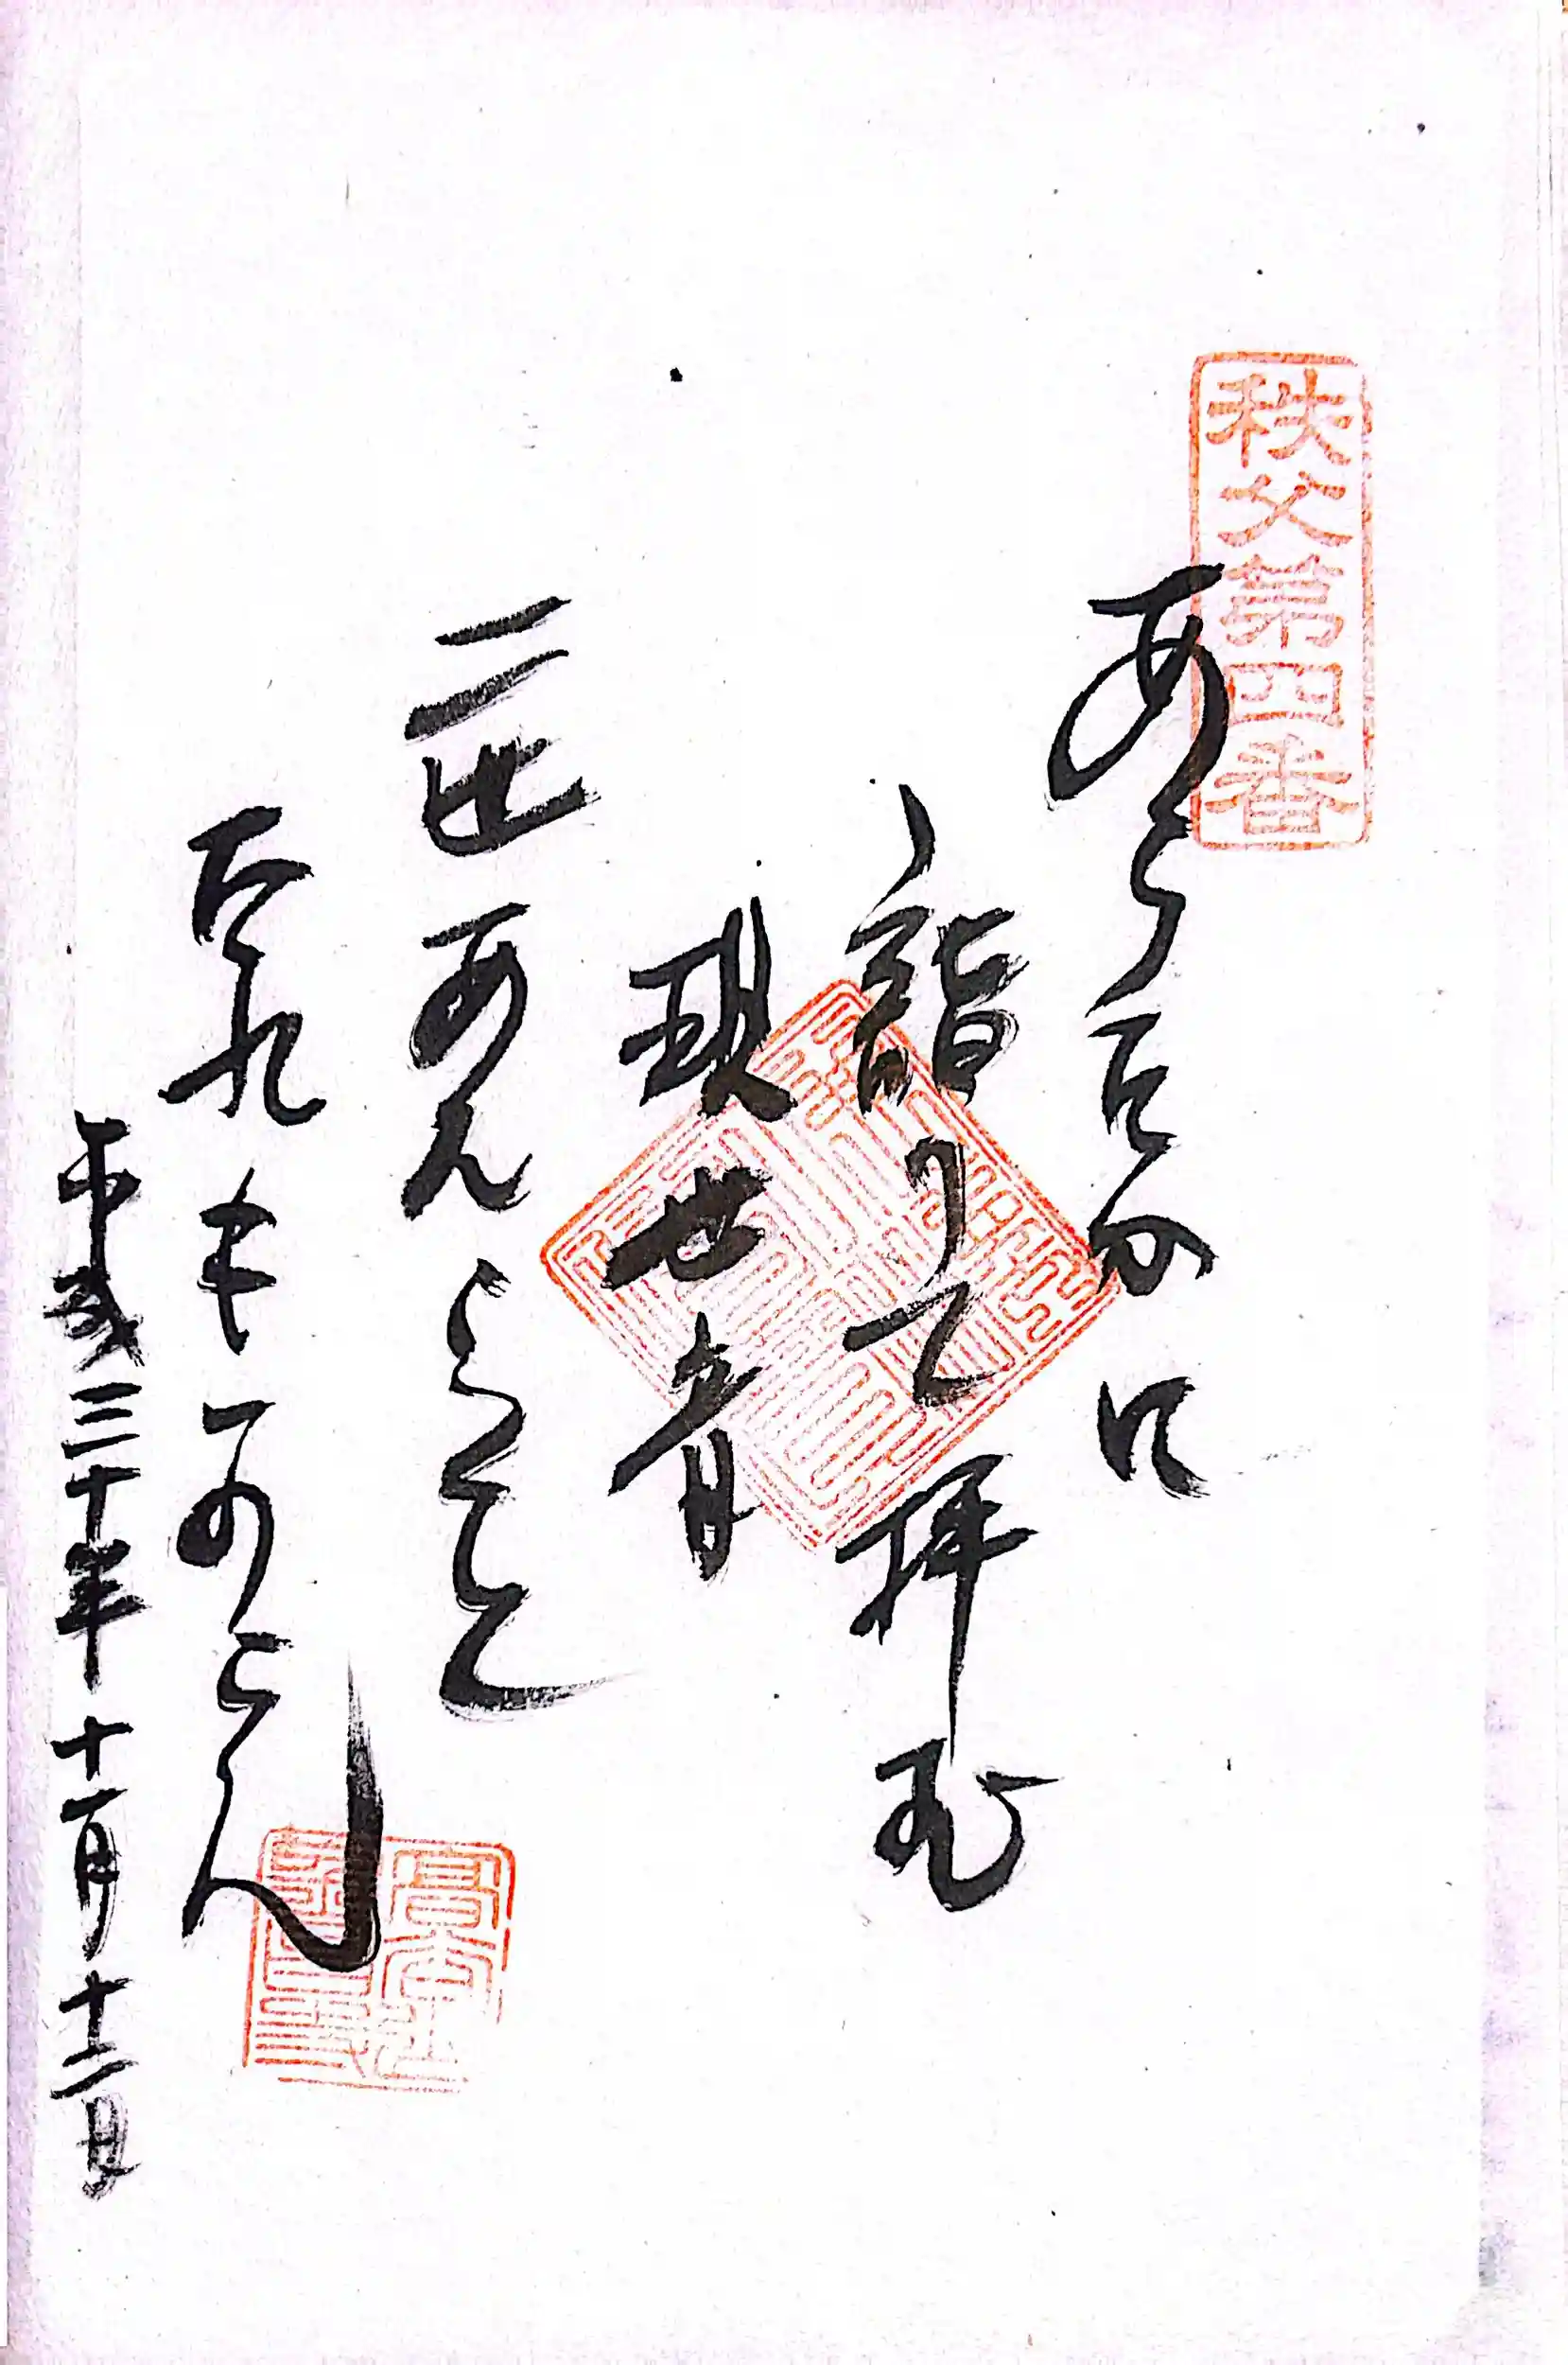 秩父第四番
あらたかに
詣りて拝む
観世音
二世あんらくと
たれもいのらん
平成三十年十一月十二日